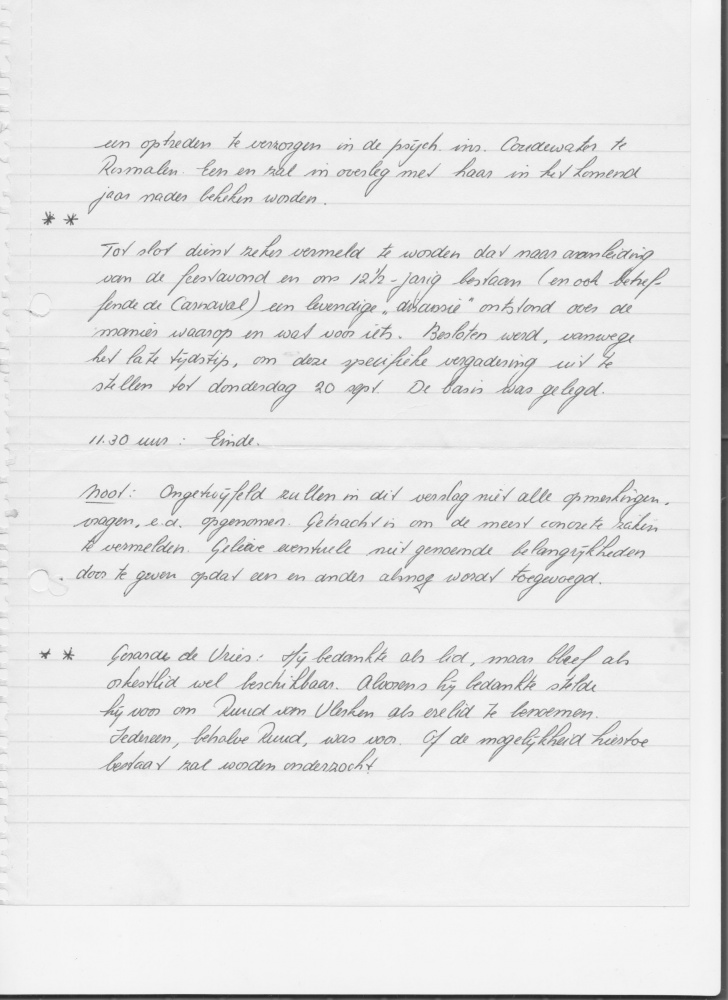 een optreden te verzorgen in de psych. inr. Coudewater te
Rosmalen. Een en zal in overleg met haar in het komend
jaar nader bekeken worden.
* *
Tot slot dient zeker vermeld te worden dat naar aanleiding
van de feestavond en ons 12½-jarig bestaan (en ook betref-
fende de Carnaval) een levendige „discussie" ontstond over de
manier waarop en wat voor iets. Besloten werd, vanwege
het late tijdstip, om deze specifieke vergadering uit te
stellen tot donderdag 20 sept. De basis was gelegd.
11.30 uur : Einde.
Noot: Ongetwijfeld zullen in dit verslag niet alle opmerkingen,
vragen, e.d. opgenomen. Getracht is om de meest concrete zaken
te vermelden. Gelieve eventuele niet genoemde belangrijkheden
door te geven opdat een en ander alsnog wordt toegevoegd.
* * Gerard de Vries: Hij bedankte als lid, maar bleef als
orkestlid wel beschikbaar. Alvorens hij bedankte stelde
hij voor om Ruud van Vlerken als erelid te benoemen.
Iedereen, behalve Ruud, was voor. Of de mogelijkheid hiertoe
bestaat zal worden onderzocht!